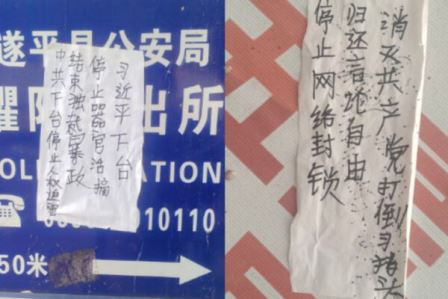 遂平县公安局
出所
OL
ATION
010110
50米
习近平下台
停止器官活摘
结束独裁暴政
中共下台停止人权迫害
消灭共产党打倒习猪头
归还言论自由
停止网络封锁